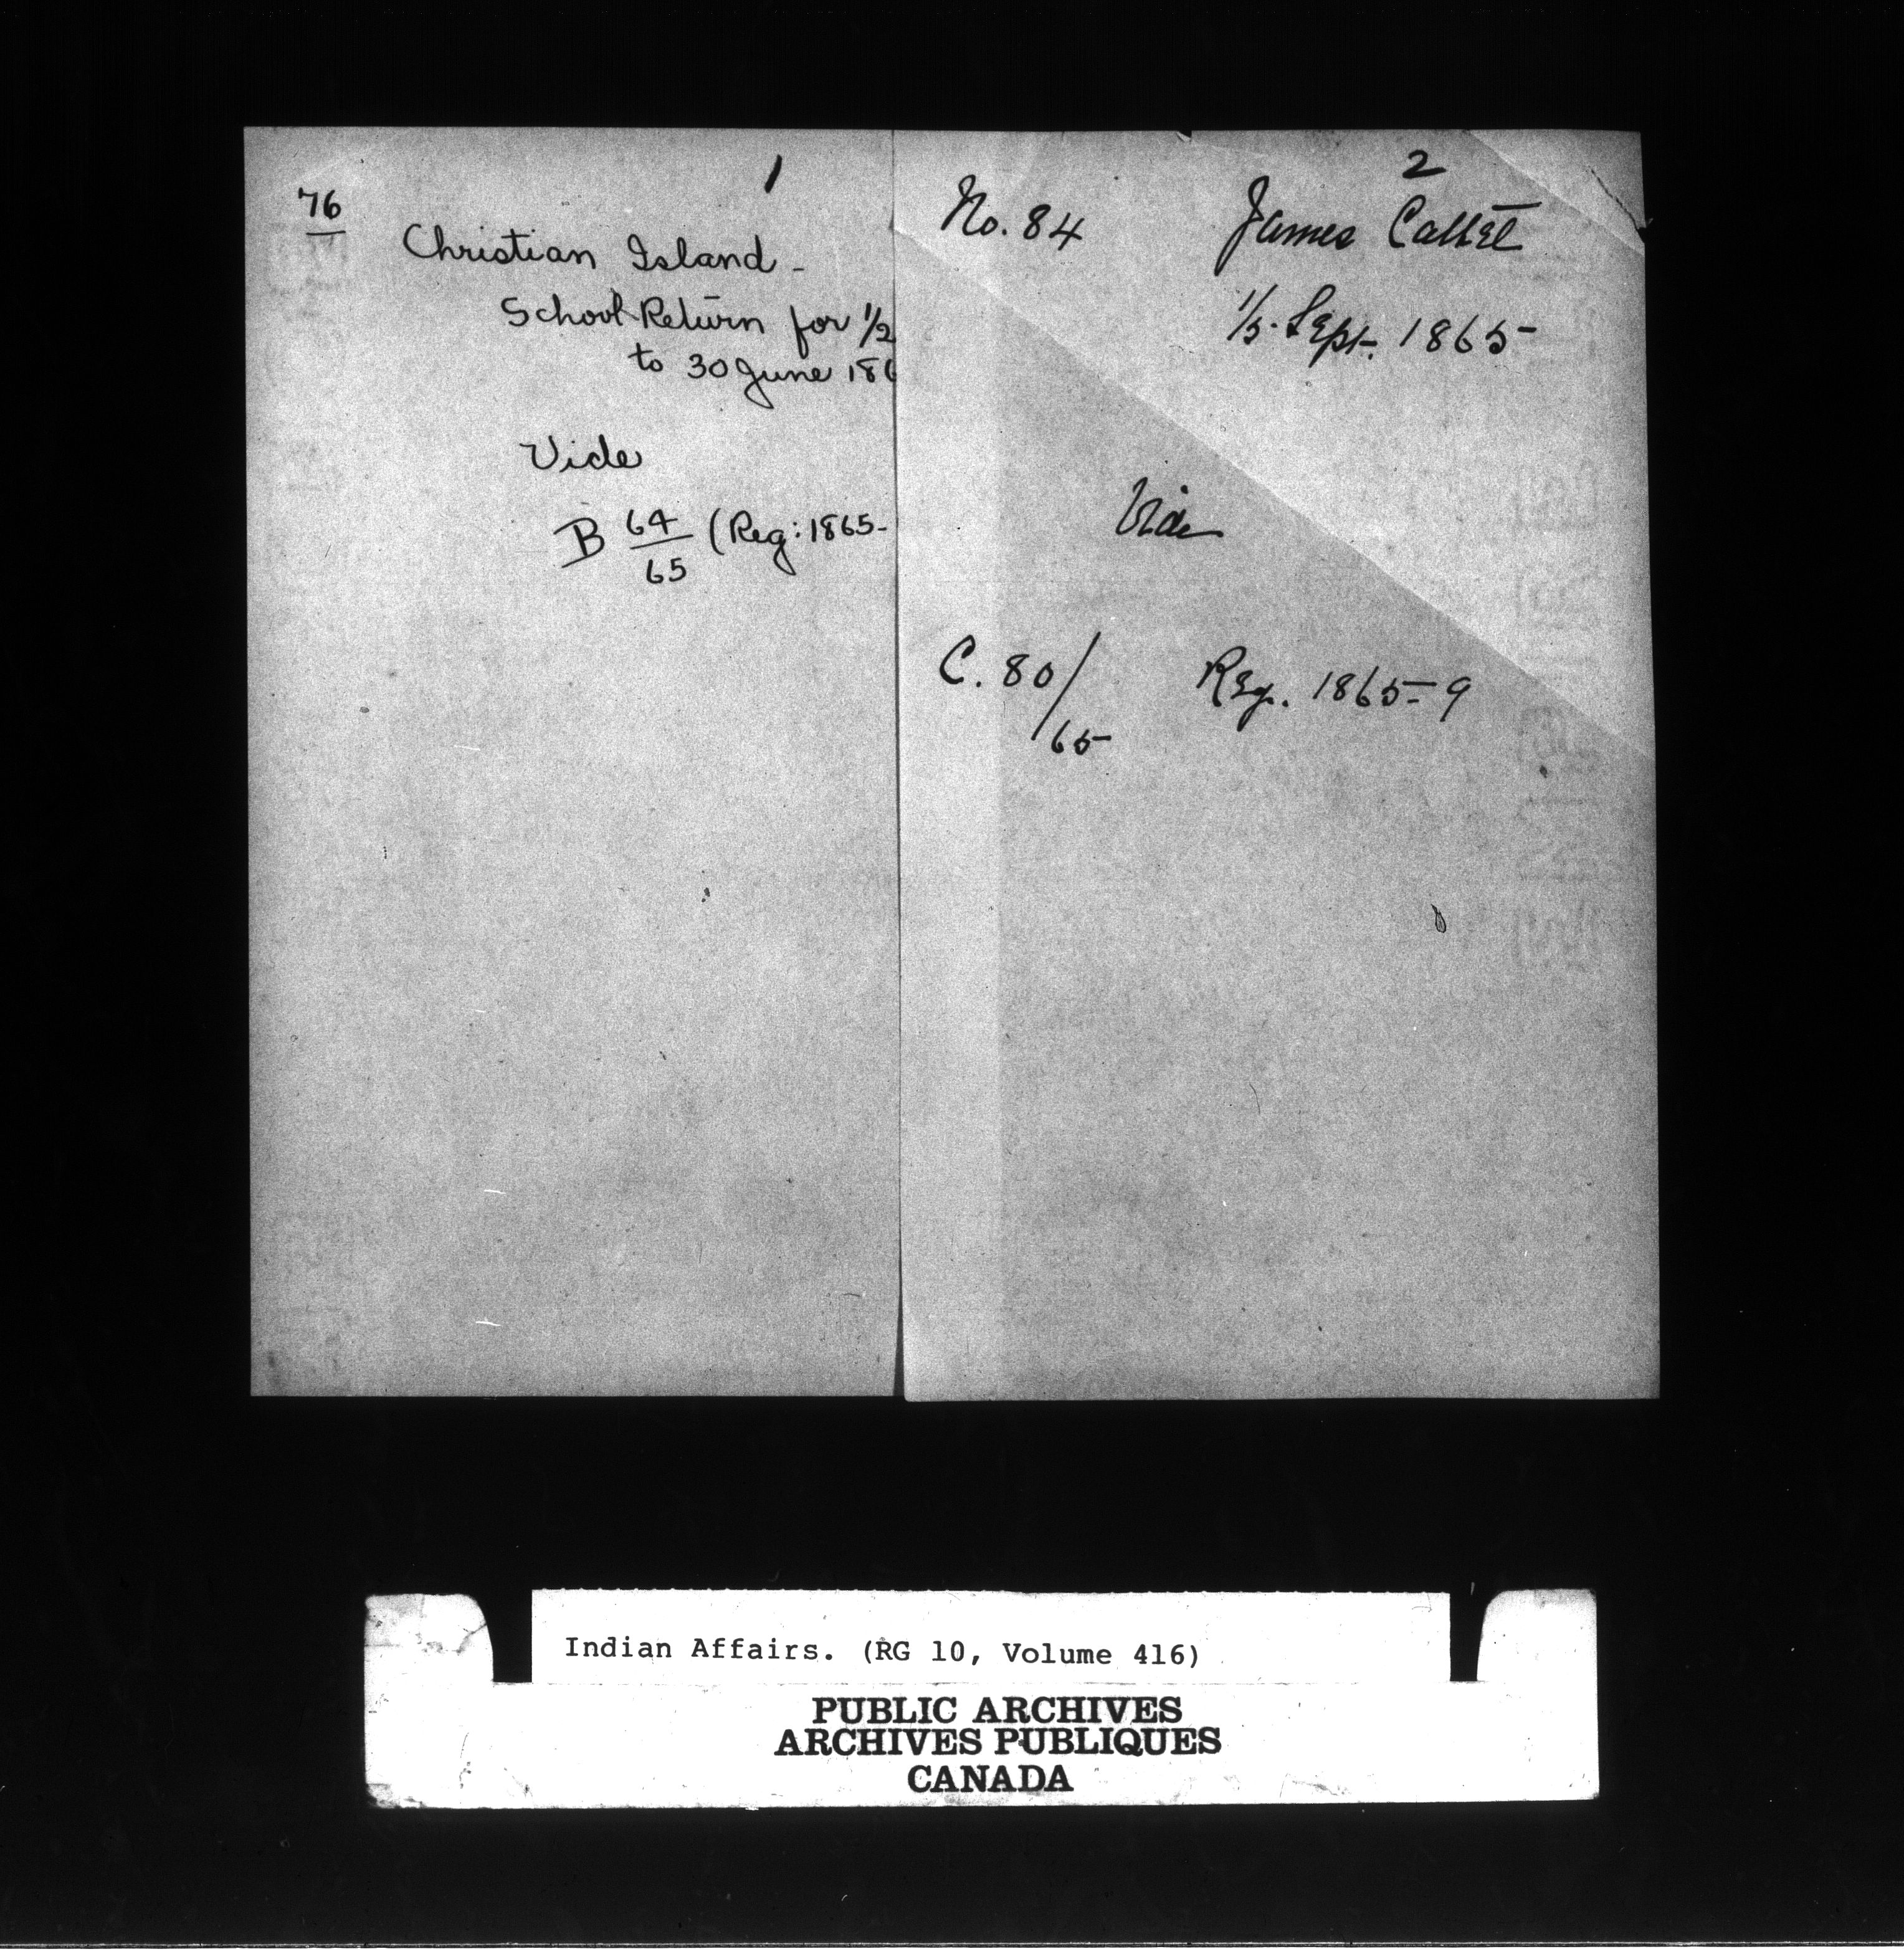 1
76
Christian Island -
School Return for 1/2
to 30 June 186
Vide
B 64/65 (Reg: 1865-
2
No. 84 James
1/5. Sept. 1865-
Vide
C. 80/65- Reg. 1865-9
Indian Affairs. (RG 10, Volume 416)
PUBLIC ARCHIVES
ARCHIVES PUBLIQUES
CANADA